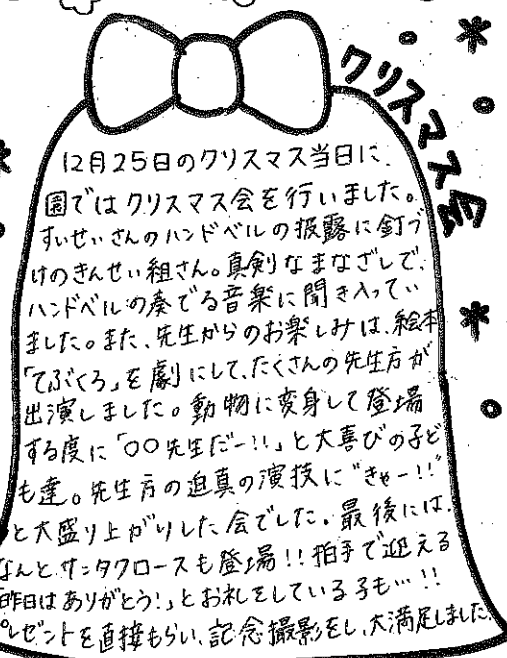 クリスマス会
12月25日のクリスマス当日に、
園ではクリスマス会を行いました。
すいせいさんのハンドベルの披露に釘づ
けのきんせい組さん。真剣なまなざしで、
ハンドベルの奏でる音楽に聞き入ってい
ました。また、先生からのお楽しみは、絵本
「てぶくろ」を劇にして、たくさんの先生方が
出演しました。動物に変身して登場
する度に「〇〇先生だー!!」と大喜びの子ど
も達。先生方の迫真の演技に"きゃー!!"
と大盛り上がりした会でした。最後には、
なんとサンタクロースも登場!!拍手で迎える
「昨日はありがとう!」とお礼をしている子も…!!
プレゼントを直接もらい、記念撮影をし、大満足しました。